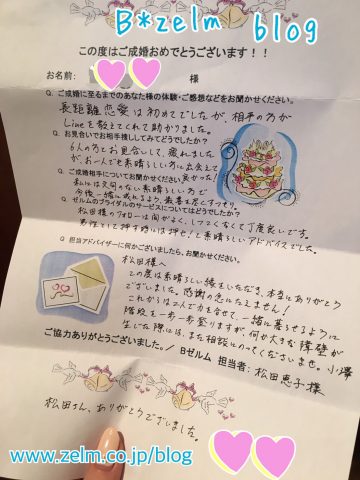 B*zelm blog
この度はご成婚おめでとうございます！！
お名前： 様
Q. ご成婚に至るまでのあなた様の体験・ご感想などをお聞かせください。
長距離恋愛は初めてでしたが、相手の方が
Lineを教えてくれて助かりました。
Q. お見合いでお相手探ししてみてどうでしたか？
6人の方とお見合いして、疲れました
が、お一人でも素晴らしい方に出会えて
良かった。
Q. ご成婚相手についてお聞かせください
私には文句のない素晴らしい方で
今後一緒に成れるよう、最善を尽くすつもり。
Q. ゼルムのブライダルのサービスについてはどうでしたか？
松田様のフォローは間がよく、しつこくなくて丁度良いです。
男性として押す時には押せ！と素晴らしいアドバイスでした。
Q. 担当アドバイザーに何かございましたら、お聞かせください。
松田様へ
この度は素晴らしい縁をいただき、本当にありがとう
ございました。感謝の念にたえません！
これからは二人で力を合せて、一緒に暮らせるように
階段を一歩一歩登りますが、何か大きな障壁が
生じた際には、また相談にのってくださいませ。小澤
ご協力ありがとうございました。／Bゼルム 担当者：松田恵子様
松田さん、ありがとうございました。
www.zelm.co.jp/blog